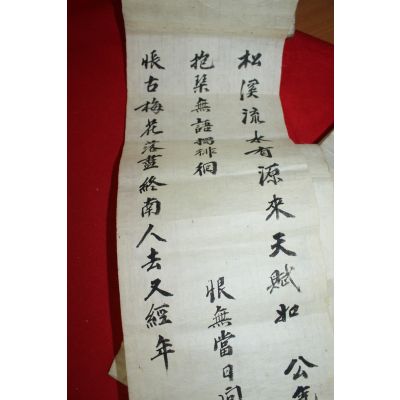 松溪流水有源來天賦如 公
抱琴無語獨徘徊 恨無當日同
悵古梅花落盡終南人去又經年